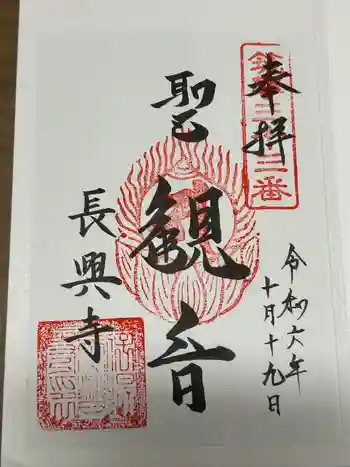 奉拝
聖観音
長興寺
令和六年
十月十九日